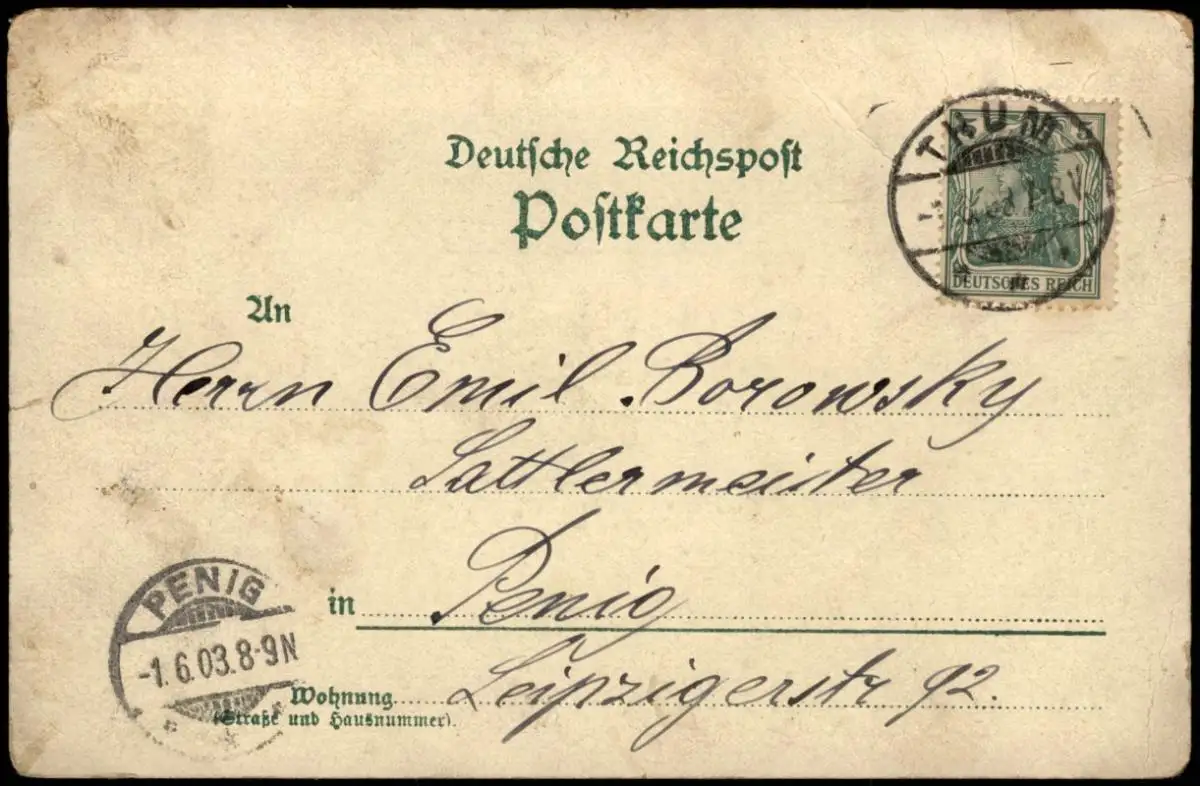 Deutsche Reichspost
Postkarte
THUM
DEUTSCHES REICH
An
Herrn Emil Borowsky
Sattlermeister
in Penig
Wohnung Leipzigerstr 92.
(Straße und Hausnummer).
PENIG
-1.6.03.8-9N